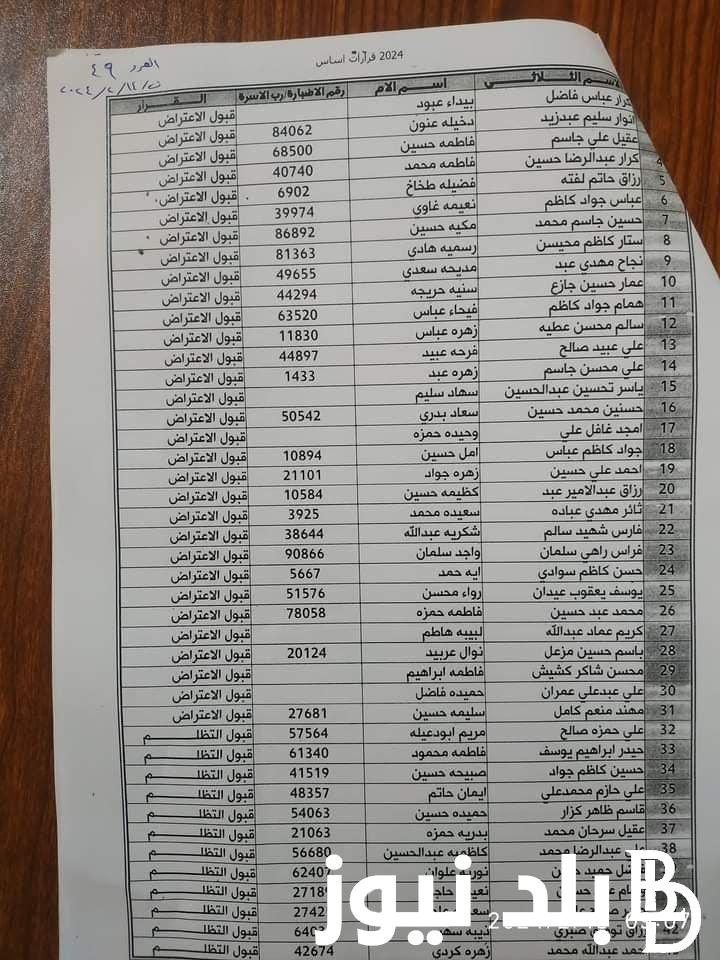 2024 قرارات اساس
العدد ٤٩
الاسم الثلاثي اسم الام رقم الاضبارة/رب الاسرة القرار
كرار عباس فاضل بيداء عبود قبول الاعتراض
انوار سليم عبدزيد دخيله عنون 84062 قبول الاعتراض
عقيل علي جاسم فاطمه حسين 68500 قبول الاعتراض
4 كرار عبدالرضا حسين فاطمه محمد 40740 قبول الاعتراض
5 رزاق حاتم لفته فضيله طخاخ 6902 قبول الاعتراض
6 عباس جواد كاظم نعيمه غاوي 39974 قبول الاعتراض
7 حسين جاسم محمد مكيه حسين 86892 قبول الاعتراض
8 ستار كاظم محيسن رسميه هادي 81363 قبول الاعتراض
9 نجاح مهدي عبد مديحه سعدي 49655 قبول الاعتراض
10 عمار حسين جازع سنيه حريجه 44294 قبول الاعتراض
11 همام جواد كاظم فيحاء عباس 63520 قبول الاعتراض
12 سالم محسن عطيه زهره عباس 11830 قبول الاعتراض
13 علي عبيد صالح فرحه عبيد 44897 قبول الاعتراض
14 علي محسن جاسم زهره عبد 1433 قبول الاعتراض
15 ياسر تحسين عبدالحسين سهاد سليم قبول الاعتراض
16 حسنين محمد حسين سعاد بدري 50542 قبول الاعتراض
17 امجد غافل علي وحيده حمزه قبول الاعتراض
18 جواد كاظم عباس امل حسين 10894 قبول الاعتراض
19 احمد علي حسين زهره جواد 21101 قبول الاعتراض
20 رزاق عبدالامير عبد كظيمه حسين 10584 قبول الاعتراض
21 ثائر مهدي عباده سعيده محمد 3925 قبول الاعتراض
22 فارس شهيد سالم شكريه عبدالله 38644 قبول الاعتراض
23 فراس راهي سلمان واجد سلمان 90866 قبول الاعتراض
24 حسن كاظم سوادي ايه حمد 5667 قبول الاعتراض
25 يوسف يعقوب عيدان رواء محسن 51576 قبول الاعتراض
26 محمد عبد حسين فاطمه حمزه 78058 قبول الاعتراض
27 كريم عماد عبدالله لبيبه هاطم قبول الاعتراض
28 باسم حسين مزعل نوال عربيد 20124 قبول الاعتراض
29 محسن شاكر كشيش فاطمه ابراهيم قبول الاعتراض
30 علي عبدعلي عمران حميده فاضل قبول الاعتراض
31 مهند منعم كامل سليمه حسين 27681 قبول الاعتراض
32 علي حمزه صالح مريم ابودعيله 57564 قبول التظلـــــم
33 حيدر ابراهيم يوسف فاطمه محمود 61340 قبول التظلـــــم
34 حسين كاظم جواد صبيحه حسين 41519 قبول التظلـــــم
35 علي حازم محمدعلي ايمان حاتم 48357 قبول التظلـــــم
36 قاسم ظاهر كزار حميده حسين 54063 قبول التظلـــــم
37 عقيل سرحان محمد بدريه حمزه 21063 قبول التظلـــــم
38 علي عبدالرضا محمد كاظميه عبدالحسين 56680 قبول التظلـــــم
حميد نوريه علوان 62407 قبول التظلـــــم
علي 27189 قبول التظلـــــم
2742 قبول التظلـــــم
42 رزاق صبري 6403 قبول التظلـــــم
عبدالله محمد زهره كردي 42674 قبول التظلـــــم
بلد نيوز